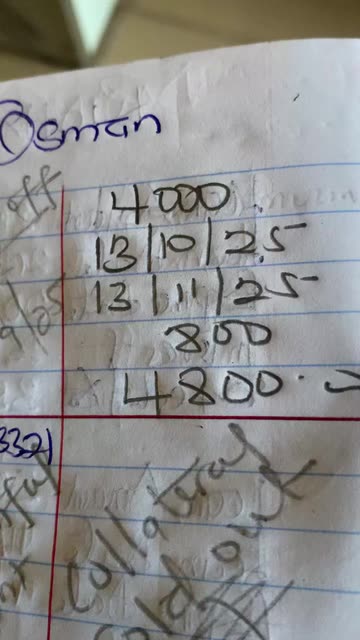 Osman
off
4000
13/10/25
13/11/25
800
4800.
332)
Collateral
sold out